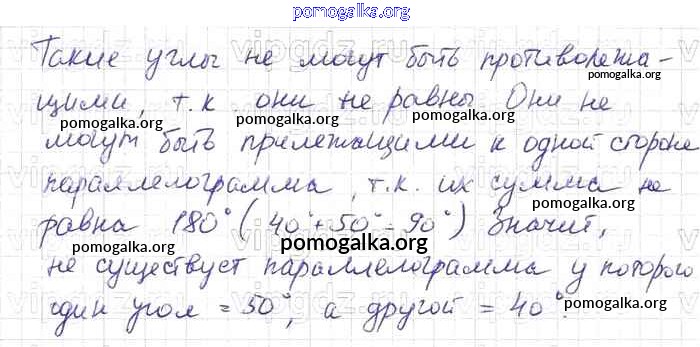 pomogalka.org
Такие углы не могут быть противолежа-
щими, т.к они не равны Они не
могут быть прилежащими к одной стороне
параллелограмма, т.к. их сумма не
равна 180° (40°+50°=90°) Значит,
не существует параллелограмма у которого
один угол = 50°, а другой = 40°.
pomogalka.org
pomogalka.org
pomogalka.org
pomogalka.org
pomogalka.org
pomogalka.org
pomogalka.org
pomogalka.org
pomogalka.org
pomogalka.org
pomogalka.org